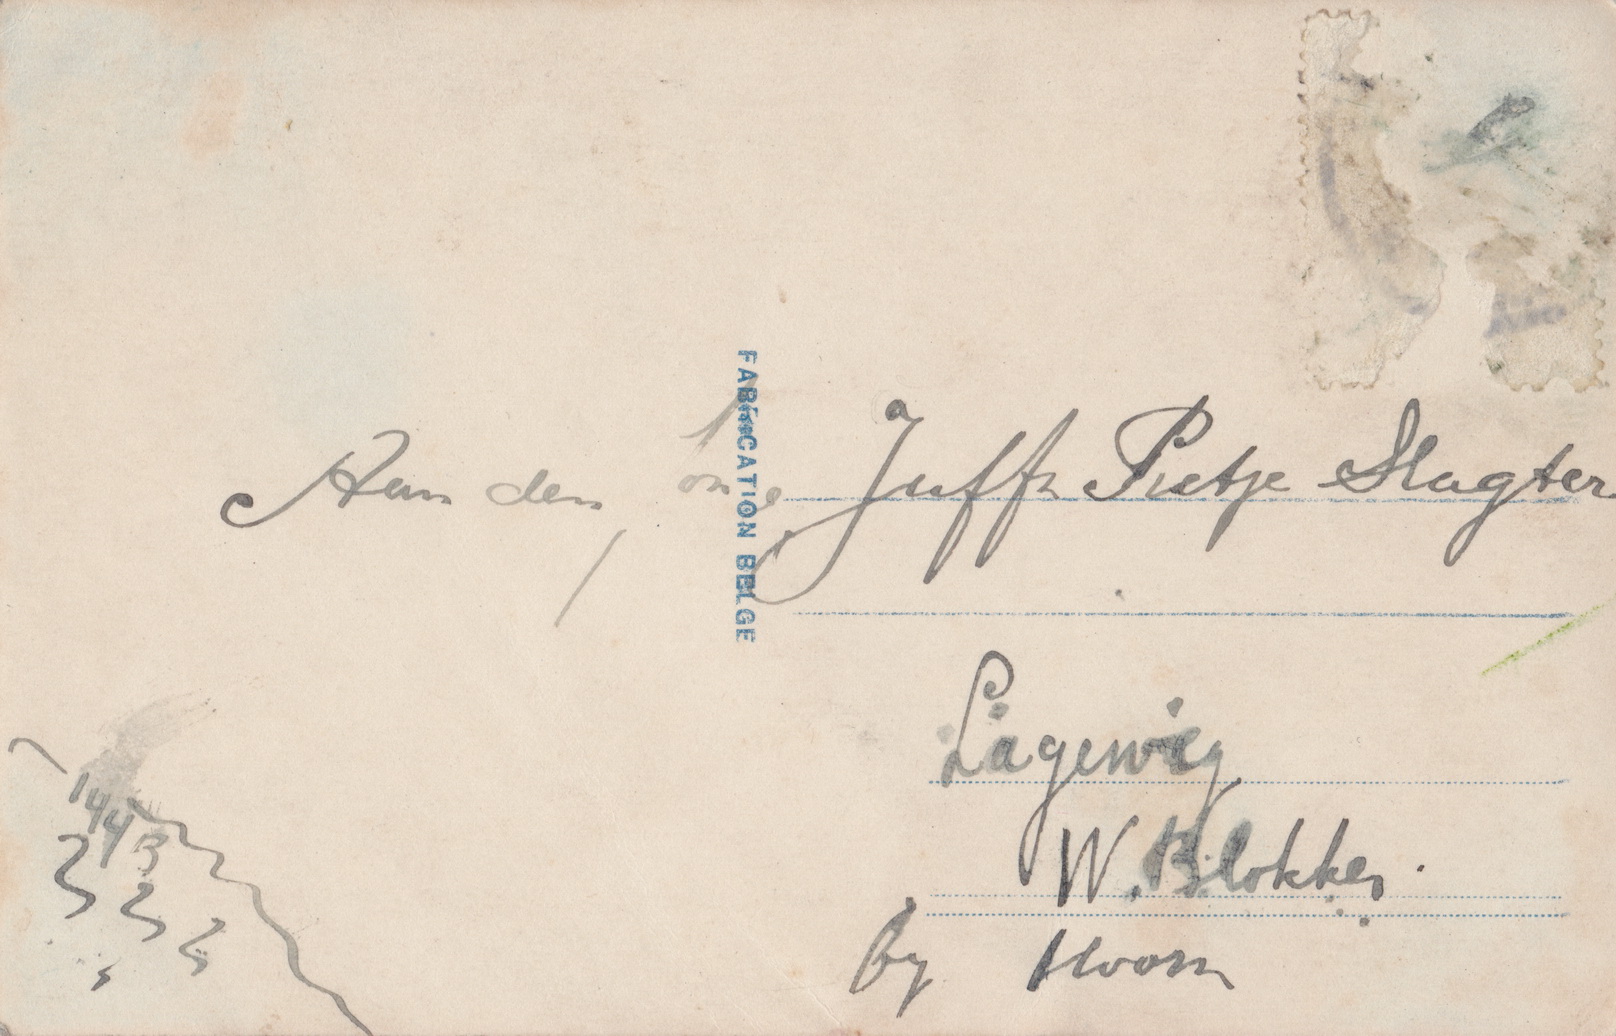 FABRICATION BELGE
Aan den
Juffr Pietje Slagter
Lageweg
W. Blokker.
by Hoorn